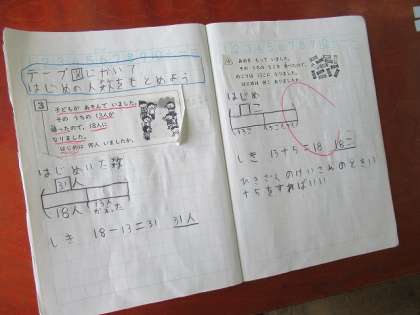 テープ図にかいて
はじめの人数をもとめよう
3
子どもが あそんで いました。
その うちの 13人が
帰ったので、18人に
なりました。
はじめは 何人 いましたか。
はじめいた数
31人
18人
13人
かえった
しき 18-13=31 31人
4
あめを もって いました。
はじめ
しき 13+5=18 18こ
ひきざんのけいさんのときい
+ちをすればいい